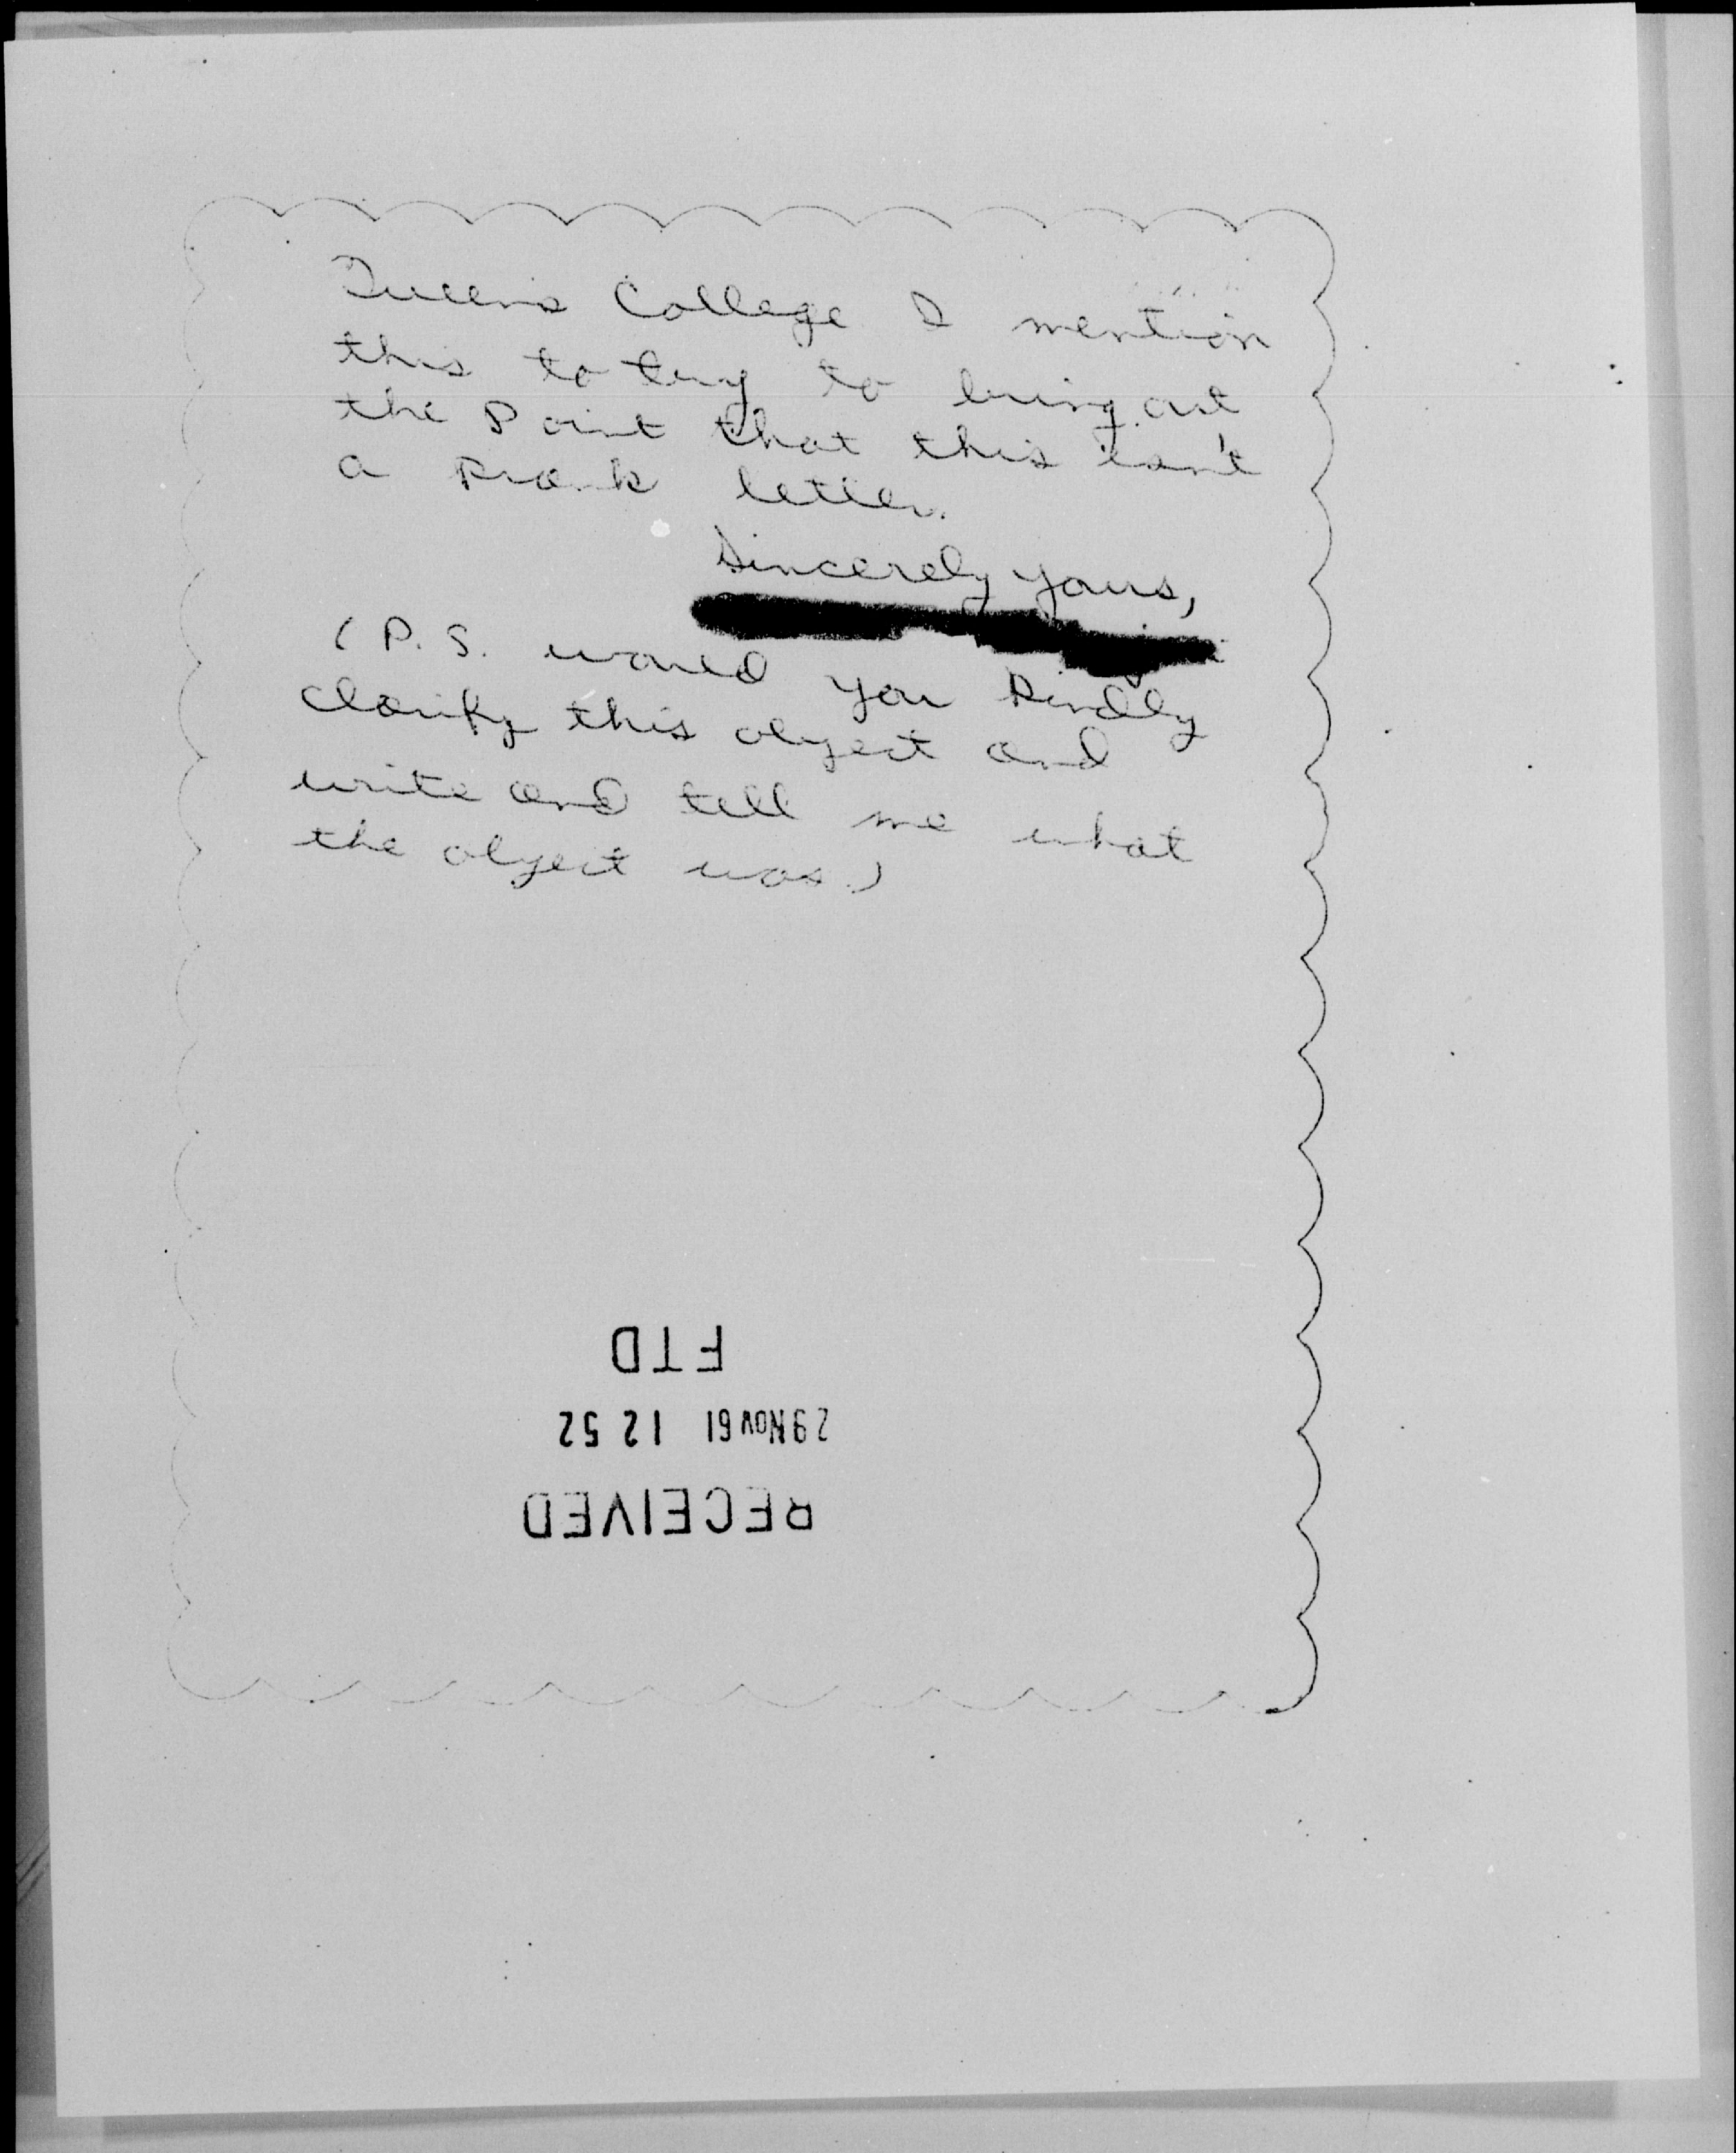 Queens College I mention
this to try to bring out
the Point that this isn't
a Prank letter.
Sincerely yours,
(P.S. would you kindly
clarify this object and
write and tell me what
the object was.)
RECEIVED
29 Nov 61 12 52
FTD